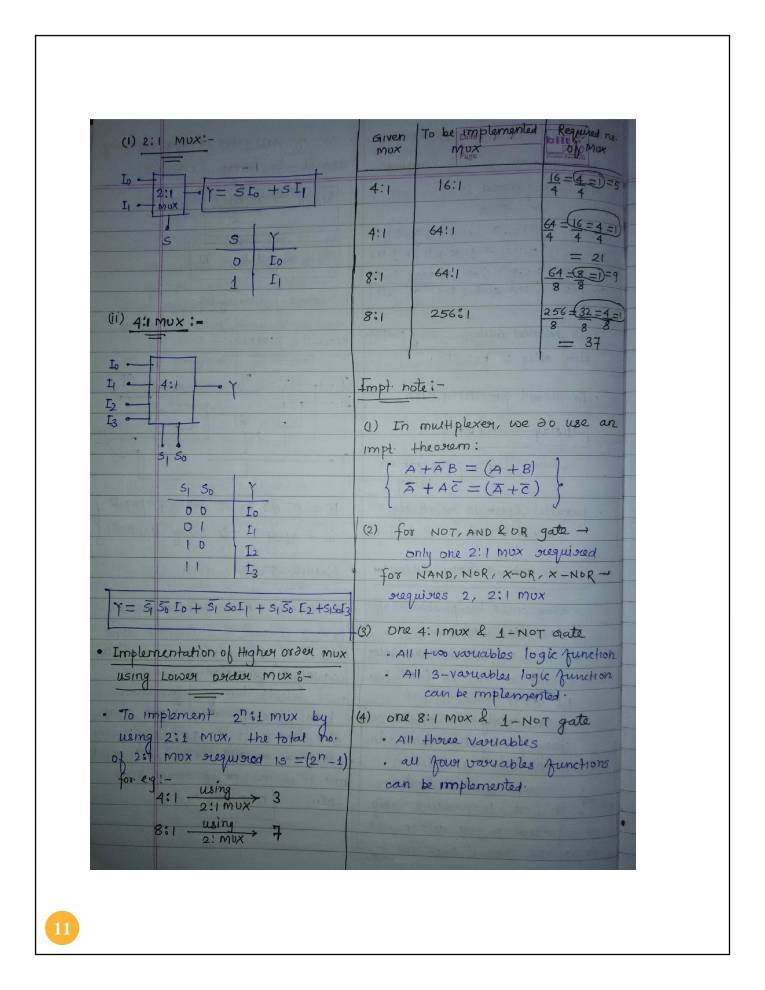 (i) 2:1 MUX:-
I0
I1
2:1
MUX
Y = S̅ I0 + S I1
S
S Y
0 I0
1 I1
(ii) 4:1 MUX :-
I0
I1
I2
I3
4:1
Y
S1 S0
S1 S0 Y
0 0 I0
0 1 I1
1 0 I2
1 1 I3
Y = S̅1 S̅0 I0 + S̅1 S0 I1 + S1 S̅0 I2 + S1 S0 I3
• Implementation of Higher order MUX
using Lower order MUX :-
• To implement 2ⁿ:1 MUX by
using 2:1 MUX, the total no.
of 2:1 MUX required is = (2ⁿ-1)
for eg:-
4:1 using 2:1 MUX → 3
8:1 using 2:1 MUX → 7
Given MUX To be implemented MUX Required no. of MUX
4:1 16:1 16/4 = 4/4 = 1 = 5
4:1 64:1 64/4 = 16/4 = 4/4 = 1
= 21
8:1 64:1 64/8 = 8/8 = 1 = 9
8:1 256:1 256/8 = 32/8 = 4/8 = 1
= 37
Impt. note:-
(1) In multiplexer, we do use an
impt. theorem:
A + A̅ B = (A + B)
A̅ + A C̅ = (A̅ + C̅)
(2) for NOT, AND & OR gate →
only one 2:1 MUX required
for NAND, NOR, X-OR, X-NOR →
requires 2, 2:1 MUX
(3) One 4:1 MUX & 1-NOT Gate
• All two variables logic function
• All 3-variables logic function
can be implemented.
(4) one 8:1 MUX & 1-NOT gate
• All three variables
• all four variables functions
can be implemented.
11